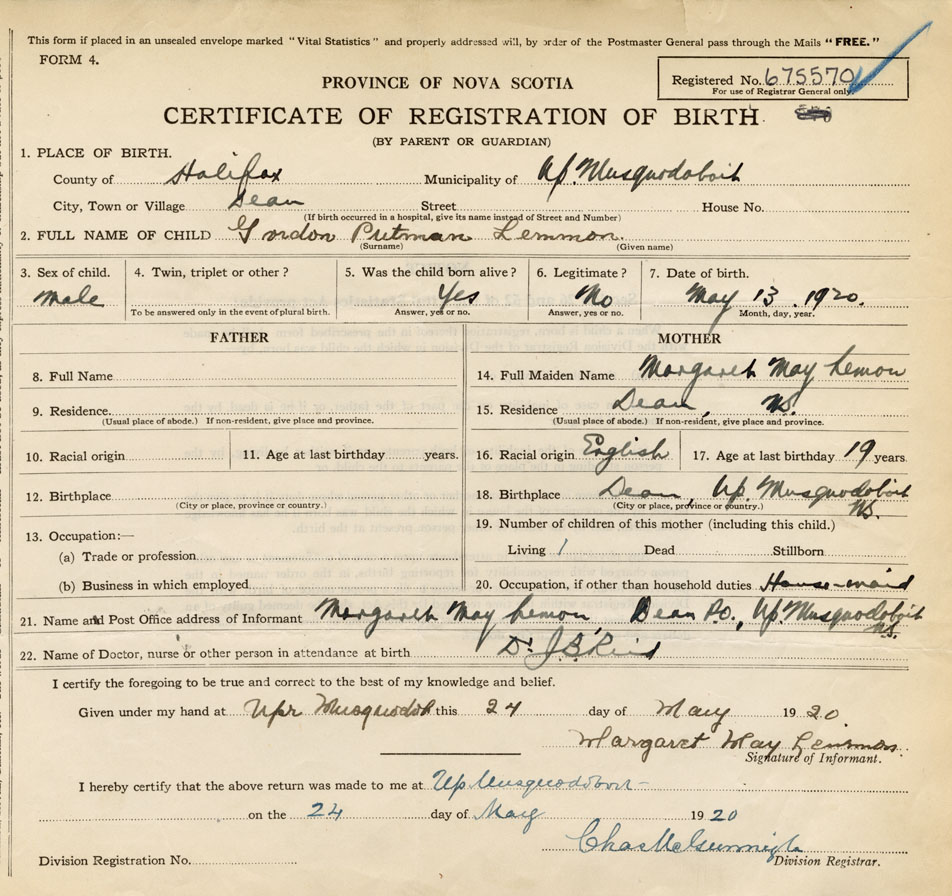 This form if placed in an unsealed envelope marked "Vital Statistics" and properly addressed will, by order of the Postmaster General pass through the Mails "FREE."
FORM 4.
Registered No. 675570
For use of Registrar General only.
PROVINCE OF NOVA SCOTIA
CERTIFICATE OF REGISTRATION OF BIRTH
(BY PARENT OR GUARDIAN)
1. PLACE OF BIRTH.
County of Halifax Municipality of Up. Musquodoboit
City, Town or Village Dean Street House No.
(If birth occurred in a hospital, give its name instead of Street and Number)
2. FULL NAME OF CHILD Gordon Putman Lemmon.
(Surname) (Given name)
3. Sex of child. 4. Twin, triplet or other? 5. Was the child born alive? 6. Legitimate? 7. Date of birth.
male Yes No May 13 . 1920.
To be answered only in the event of plural birth. Answer, yes or no. Answer, yes or no. Month, day, year.
FATHER MOTHER
8. Full Name 14. Full Maiden Name Margaret May Lemon
9. Residence. 15. Residence Dean, NS.
(Usual place of abode.) If non-resident, give place and province. (Usual place of abode.) If non-resident, give place and province.
10. Racial origin 11. Age at last birthday years. 16. Racial origin English 17. Age at last birthday 19 years.
12. Birthplace 18. Birthplace Dean, Up. Musquodoboit NS.
(City or place, province or country.) (City or place, province or country.)
13. Occupation:— 19. Number of children of this mother (including this child.)
(a) Trade or profession Living 1 Dead Stillborn
(b) Business in which employed 20. Occupation, if other than household duties House-maid
21. Name and Post Office address of Informant Margaret May Lemon Dean P.O., Up. Musquodoboit NS.
22. Name of Doctor, nurse or other person in attendance at birth Dr J B Reid
I certify the foregoing to be true and correct to the best of my knowledge and belief.
Given under my hand at Upr Musquodobt this 24 day of May 1920.
Margaret May Lemmon
Signature of Informant.
I hereby certify that the above return was made to me at Up Musquodoboit
on the 24 day of May 1920
Chas
Division Registration No. Division Registrar.